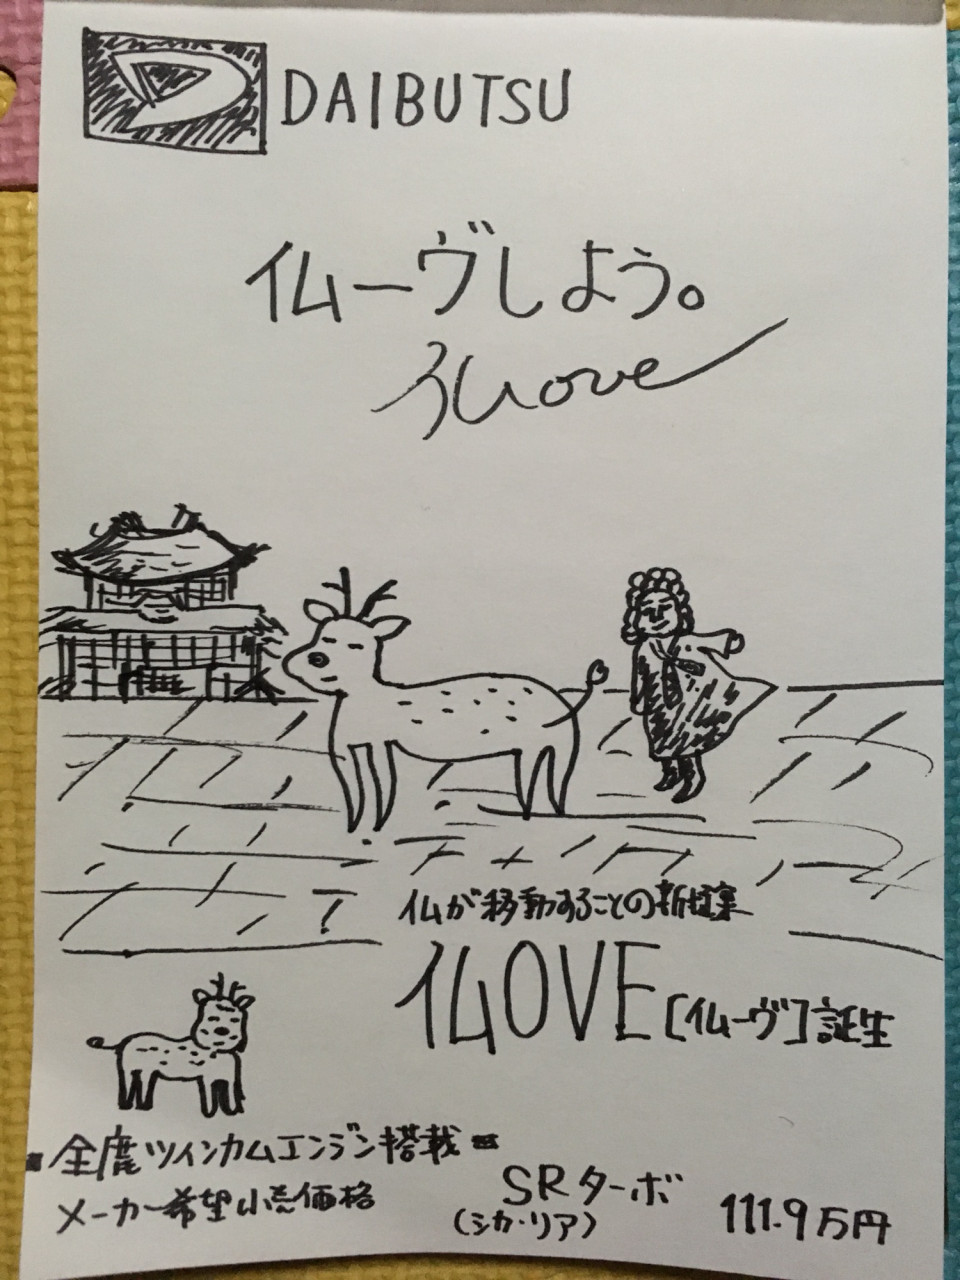 DAIBUTSU
仏ーヴしよう。
仏ove
仏が移動することの新提案
仏OVE[仏ーヴ]誕生
全鹿ツインカムエンジン搭載
メーカー希望小売価格
SRターボ
(シカ・リア)
111.9万円